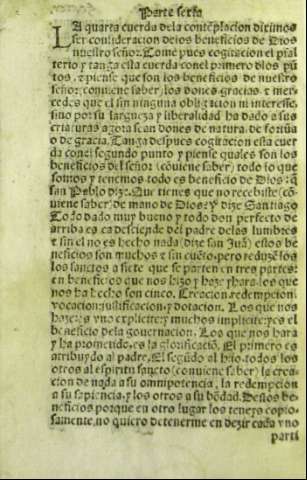 Parte sexta
LA quarta cuerda dela contēplacion diximos
ser consideracion de los beneficios de Dios
nuestro señor. Tome pues cogitacion el psal
terio y tanga esta cuerda con el primero dlos pū
tos, & piense que son los beneficios de nuestro
señor: conuiene saber, los dones, gracias, & mer-
cedes que el sin ninguna obligacion ni interesse,
sino por su largueza y liberalidad ha dado a sus
criaturas agora sean dones de natura, de fortūa
o de gracia. Tanga despues cogitacion esta cuer
da conel segundo punto y piense quales son los
beneficios del señor (conuiene saber) todo lo que
somos y tenemos todo es beneficio de Dios: d̄
san Pablo dize. Que tienes que no recebiste (cō
uiene saber) de mano de Dios: Y dize Santiago
Todo dado muy bueno y todo don perfecto de
arriba es ca desciende del padre delas lumbres
& sin el no es hecho nada (dize san Juā) estos be
neficios son muchos & sin cuēto, pero reduzē los
los sanctos a siete que se parten en tres partes:
en beneficios que nos hizo y haze y hara. los que
nos ha hecho son cinco. Creacion, redempcion,
vocacion, justificacion, y dotacion. Los que nos
haze: es vno explicite: y muchos implicite: y es el
beneficio dela gouernacion. Los que nos hará
y ha prometido, es la glorificaciō. El primero es
atribuydo al padre, El segūdo al hijo, todos los
otros al espiritu sancto (conuiene saber) la crea-
cion de nada a su omnipotencia, la redempcion
a su sapiencia, y los otros a su bōdad. Destos be-
neficios porque en otro lugar los teneys copio-
samente, no quiero detenerme en dezir cada vno
parti